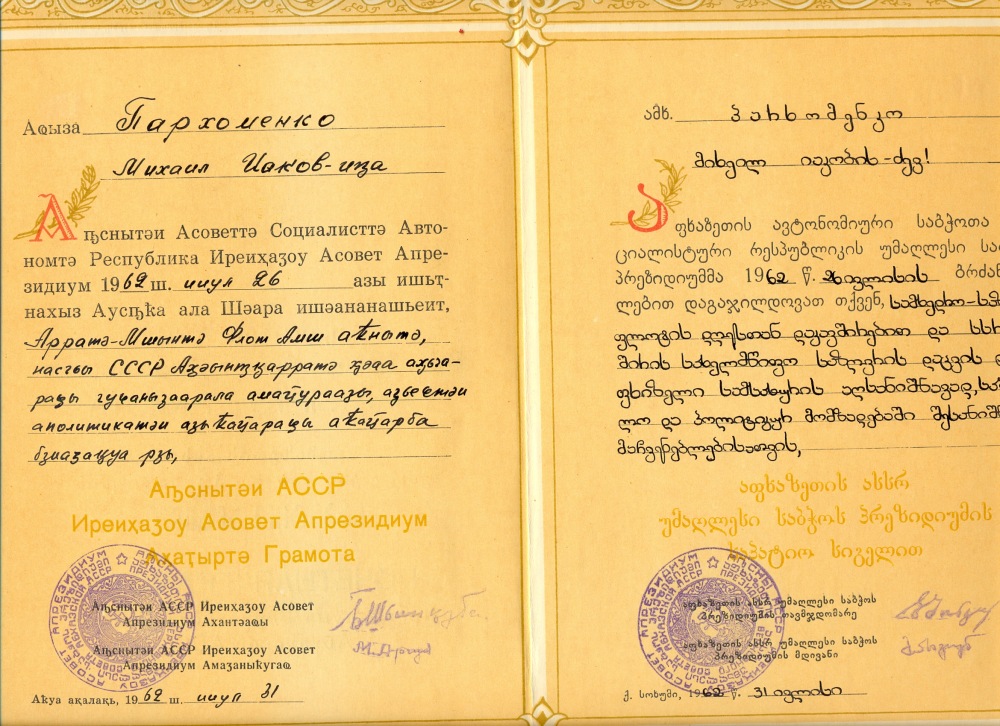 Аҩыза Пархоменко
Михаил Иаков-иҧа
Аҧснытәи Асоветтә Социалисттә Авто-
номтә Республика Иреиҳаӡоу Асовет Апре-
зидиум 1962 ш. июул 26 азы ишьҭ-
нахыз Аусԥҟа ала Шәара ишәананашьеит,
Арратә-Мшынтә Флот Амш аҟнытә,
насгьы СССР Аҳәынҭқарратә
аполитикатәи
Аҧснытәи АССР
Иреиҳаӡоу Асовет Апрезидиум
Аҳаҭыртә Грамота
Аҧснытәи АССР Иреиҳаӡоу Асовет
Апрезидиум Ахантәаҩы
Аҧснытәи АССР Иреиҳаӡоу Асовет
Апрезидиум Амаӡаныҟәгаҩ
Аҟуа ақалақь, 1962 ш. июул 31
ამხ. პარხომენკო
მიხეილ იაკობის-ძევ!
აფხაზეთის ავტონომიური საბჭოთა
ციალისტური რესპუბლიკის უმაღლესი სა
პრეზიდიუმმა 1962 წ. 26 ივლისის ბრძან
ლებით დაგაჯილდოვათ თქვენ, სამხედრო-სა
ფლოტის დღესთან დაკავშირებით და სსრ
შირის სახელმწიფო საზღვრის დაცვის
ფხიზელი სამსახურის აღსანიშნავად,
ლო და პოლიტიკურ მომზადებაში შესანიშნ
მაჩვენებლებისათვის,
აფხაზეთის ასსრ
უმაღლესი საბჭოს პრეზიდიუმის
საპატიო სიგელით
აფხაზეთის ასსრ უმაღლესი საბჭოს
პრეზიდიუმის თავმჯდომარე
აფხაზეთის ასსრ უმაღლესი საბჭოს
პრეზიდიუმის მდივანი
ქ. სოხუმი, 1962 წ. 31 ივლისი